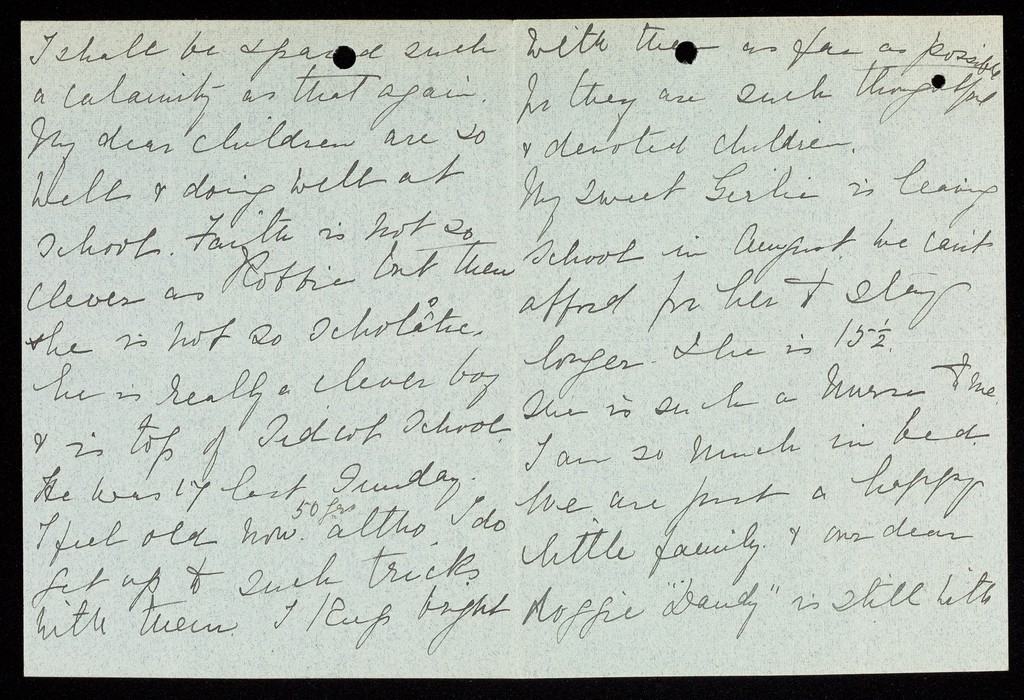 I shall be spared such
a calamity as that again.
My dear children are so
well & doing well at
school. Faith is not so
clever as Robbie but then
she is not so scholastic.
he is really a clever boy
& is top of Sidcot School.
He was 17 last Sunday.
I feel old now. 50 yrs altho I do
get up to such tricks
with them. I keep bright
with them as far as possible
for they are such thoughtful
& devoted children.
My sweet Girlie is leaving
school in August. we can't
afford for her to stay
longer. She is 15½.
She is such a nurse to me.
I am so much in bed.
We are just a happy
little family. & our dear
doggie "Dandy" is still with